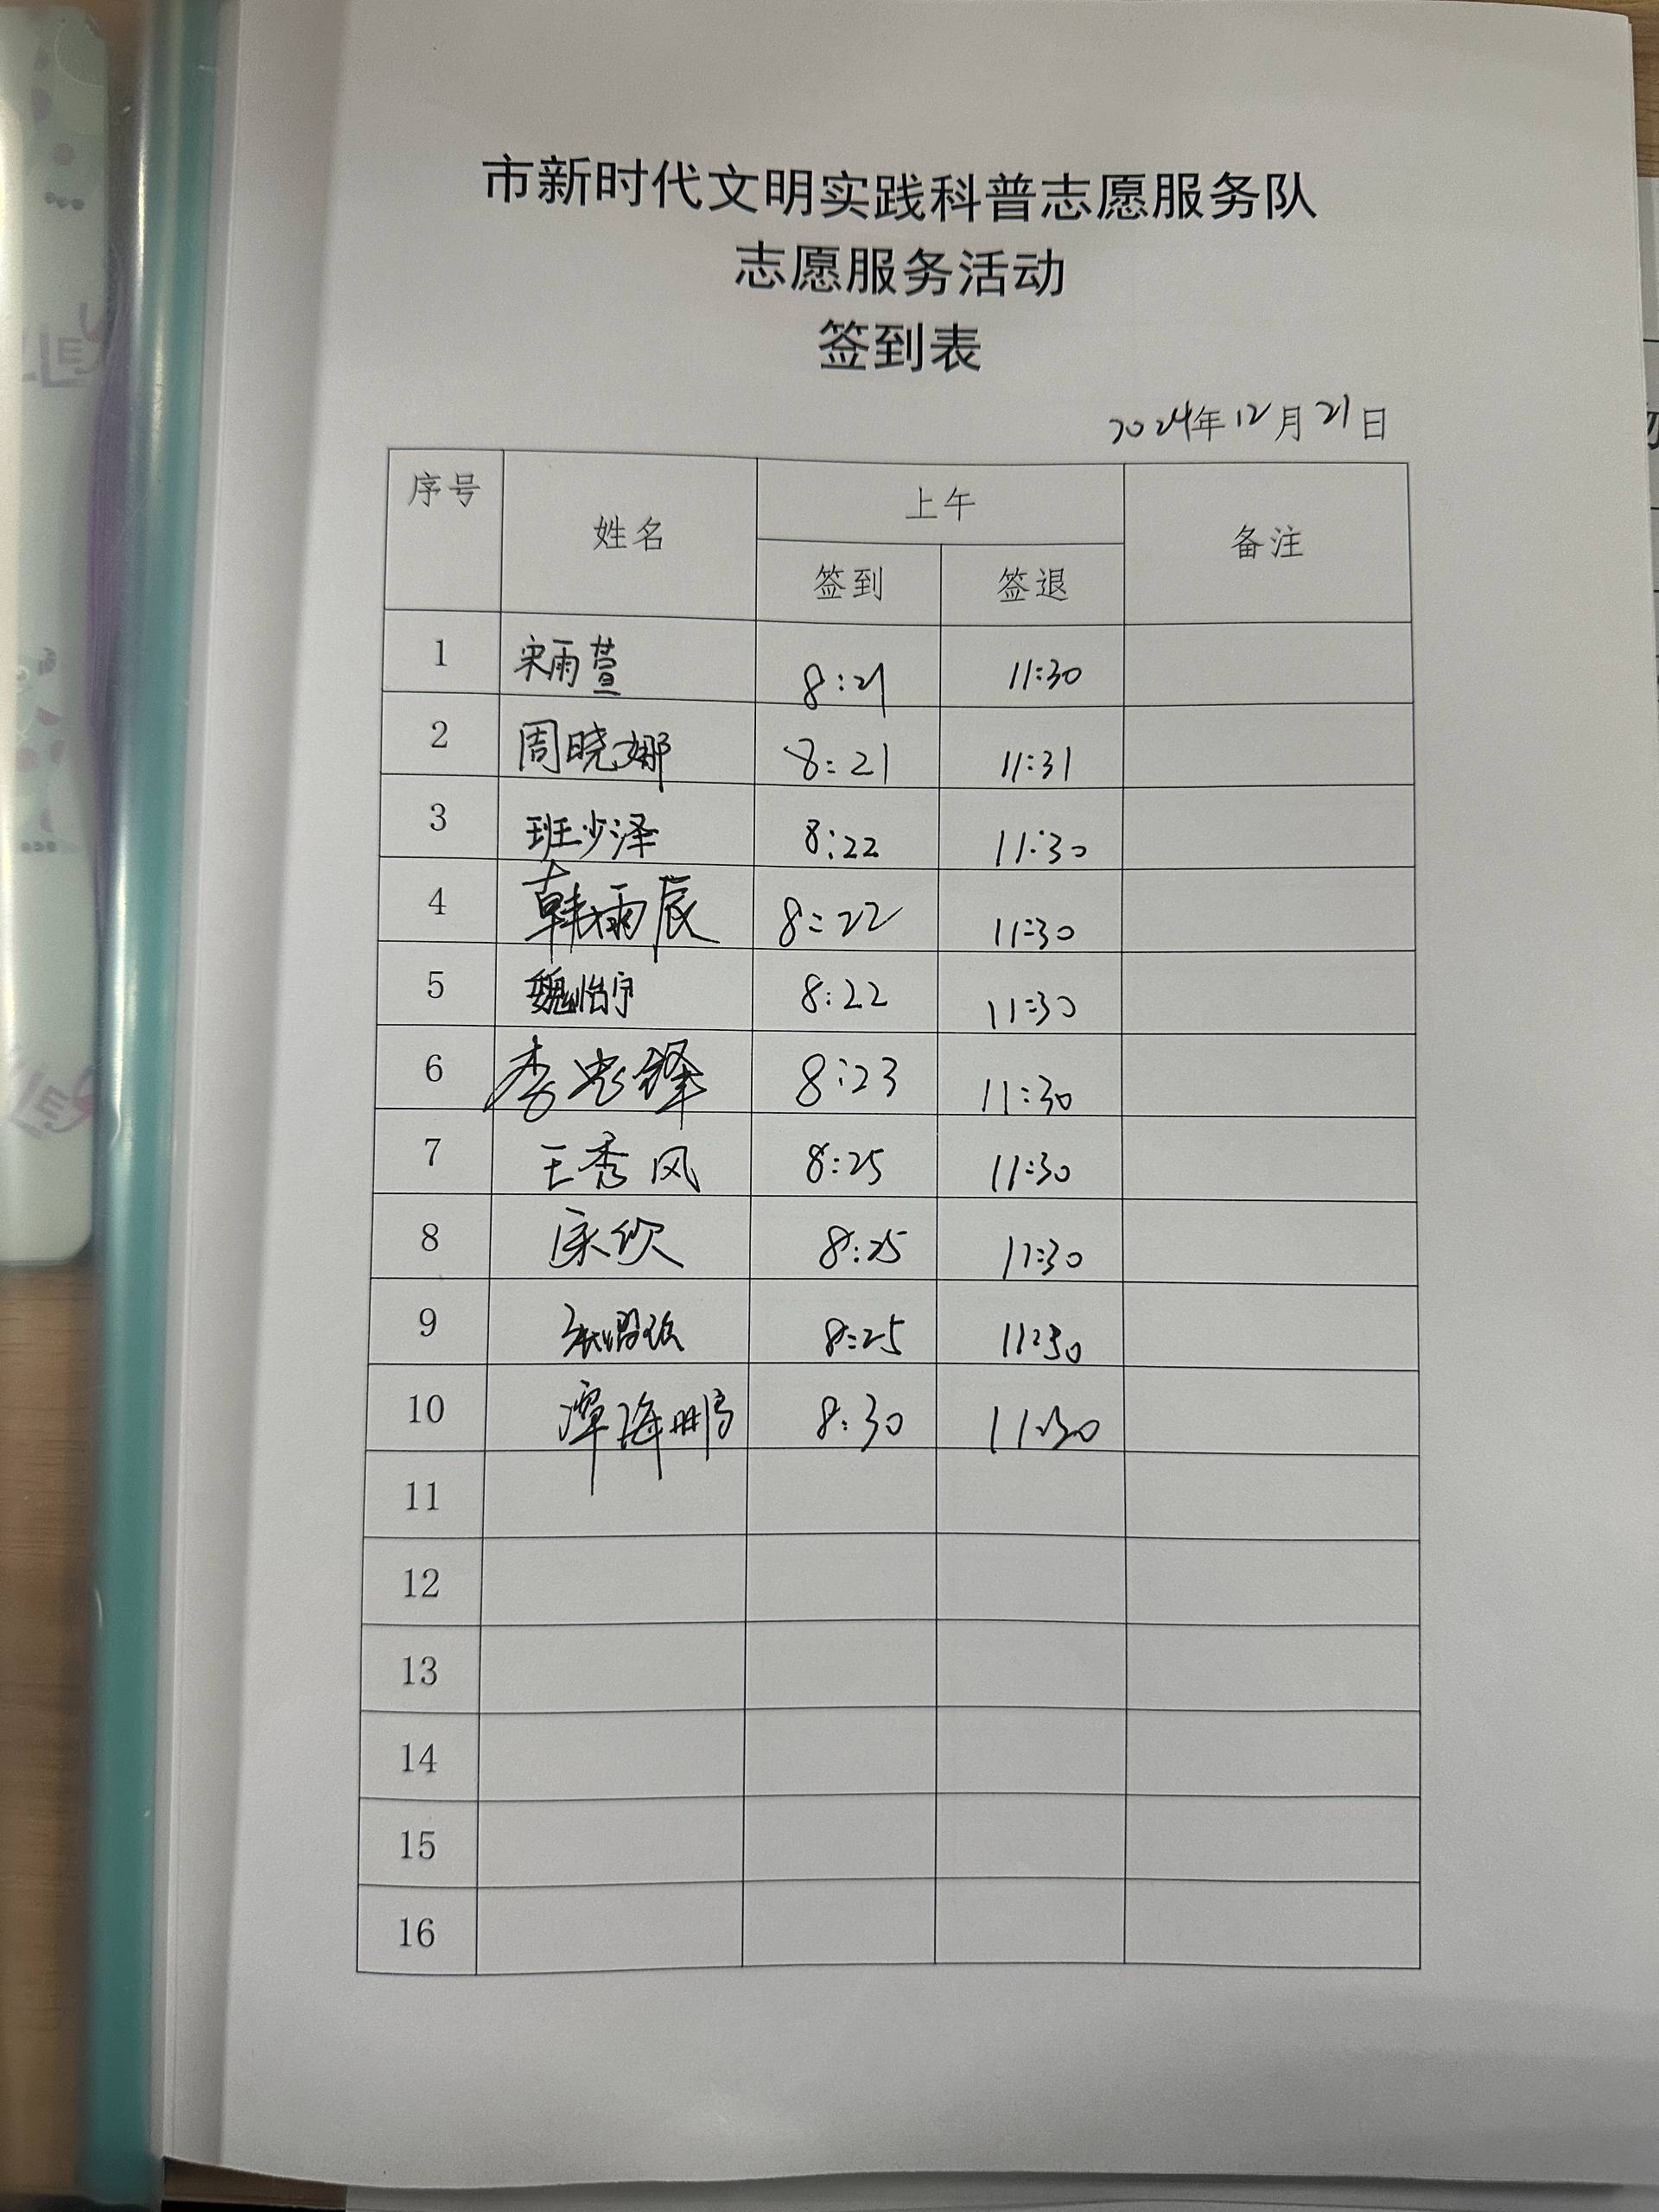 市新时代文明实践科普志愿服务队
志愿服务活动
签到表
2024年12月21日
序号 姓名 上午 备注
签到 签退
1 宋雨萱 8:21 11:30
2 周晓娜 8:21 11:31
3 班少泽 8:22 11:30
4 韩雨辰 8:22 11:30
5 魏怡宁 8:22 11:30
6 李忠锋 8:23 11:30
7 王秀风 8:25 11:30
8 8:25 11:30
9 8:25 11:30
10 覃海鹏 8:30 11:30
11
12
13
14
15
16